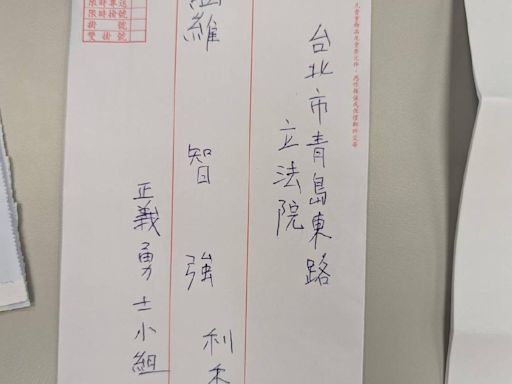 台北市青島東路
立法院
維 智 強 利
正義勇士小組
限時專送
限時掛號
掛號
雙掛號